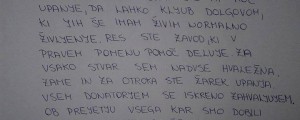 UPANJE, DA LAHKO KLJUB DOLGOVOM,
KI JIH ŠE IMAM ŽIVIM NORMALNO
ŽIVLJENJE. RES STE ZAVOD, KI V
PRAVEM POMENU POMOČ DELUJE. ZA
VSAKO STVAR SEM NADVSE HVALEŽNA.
ZAME IN ZA OTROKA STE ŽAREK UPANJA
VSEM DONATORJEM SE ISKRENO ZAHVALJUJEM.
OB PREJETJU VSEGA KAR SMO DOBILI